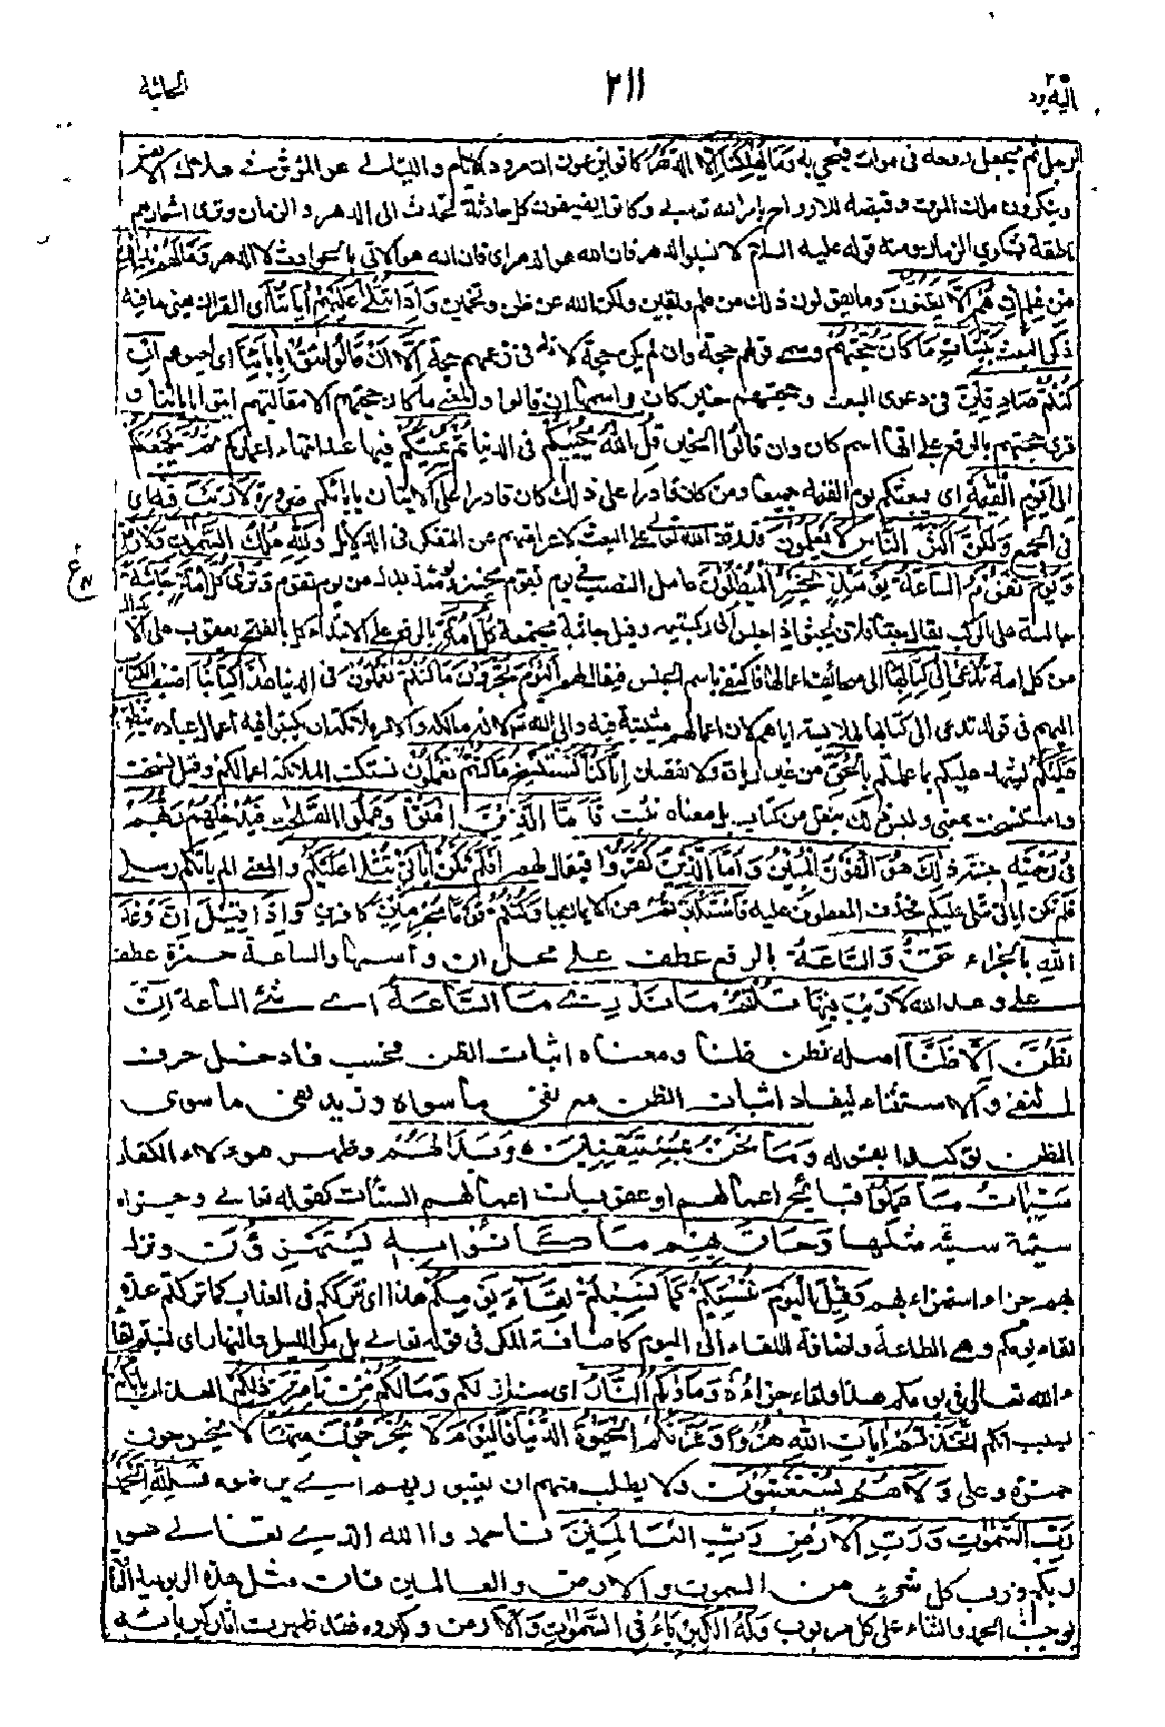 اليه يرد ٢٥
٢١١
الجاثية
الرجل ثم يجعل روحه فى موات فيحيى به وَمَا يُهْلِكُنَا إِلَّا الدَّهْرُ كانوا يزعمون ان مرور الايام والليالى هو المؤثر فى هلاك الانفس
وينكرون ملك الموت وقبضه للارواح بامر الله تعالى وكانوا يضيفون كل حادثة تحدث الى الدهر والزمان وترى اشعارهم
ناطقة بشكوى الزمان ومنه قوله عليه السلام لا تسبوا الدهر فان الله هو الدهر اى فان الله هو الآتى بالحوادث لا الدهر وَمَا لَهُمْ بِذٰلِكَ
مِنْ عِلْمٍ إِنْ هُمْ إِلَّا يَظُنُّونَ وما يقولون ذلك من علم ويقين ولكن الله عن ظن وتخمين وَإِذَا تُتْلٰى عَلَيْهِمْ اٰيَاتُنَا اى القران يعنى ما فيه
ذكر البعث بَيِّنَاتٍ مَا كَانَ حُجَّتَهُمْ وسمى قولهم حجة وان لم يكن حجة لانه فى زعمهم حجة إِلَّا أَنْ قَالُوا ائْتُوا بِاٰبَائِنَا اى احيوهم إِنْ
كُنْتُمْ صَادِقِينَ فى دعوى البعث وحجتهم خبر كان واسمها ان قالوا والمعنى ما كان حجتهم الا مقالتهم ائتوا بابائنا و
قرئ حجتهم بالرفع على انها اسم كان وان قالوا الخبر قُلِ اللّٰهُ يُحْيِيكُمْ فى الدنيا ثُمَّ يُمِيتُكُمْ فيها عند انتهاء اعماركم ثُمَّ يَجْمَعُكُمْ
إِلٰى يَوْمِ الْقِيٰمَةِ اى يبعثكم يوم القيمة جميعا ومن كان قادرا على ذلك كان قادرا على الاتيان بابائكم ضرورة لَا رَيْبَ فِيهِ اى
فى الجمع وَلٰكِنَّ أَكْثَرَ النَّاسِ لَا يَعْلَمُونَ قدرة الله تعالى على البعث لاعراضهم عن التفكر فى الدلائل وَلِلّٰهِ مُلْكُ السَّمٰوٰتِ وَالْأَرْضِ
وَيَوْمَ تَقُومُ السَّاعَةُ يَوْمَئِذٍ يَخْسَرُ الْمُبْطِلُونَ عامل النصب فى يوم تقوم يخسر ويومئذ بدل من يوم تقوم وَتَرٰى كُلَّ أُمَّةٍ جَاثِيَةً
جالسة على الركب يقال جثا فلان يجثو اذا جلس على ركبتيه وقيل جاثية مجتمعة كُلُّ أُمَّةٍ بالرفع على الابتداء كل بالفتح يعقوب على الابدال
من كل امة تُدْعٰى إِلٰى كِتَابِهَا الى صحائف اعمالها فاكتفى باسم الجنس فيقال لهم الْيَوْمَ تُجْزَوْنَ مَا كُنْتُمْ تَعْمَلُونَ فى الدنيا هٰذَا كِتَابُنَا اضيف الكتاب
اليهم فى قوله تدعى الى كتابها لملابسته اياهم لان اعمالهم مثبتة فيه والى الله تعالى لانه مالكه والآمر ملائكته ان يكتبوا فيه اعمال عباده يَنْطِقُ
عَلَيْكُمْ يشهد عليكم بما عملتم بِالْحَقِّ من غير زيادة ولا نقصان إِنَّا كُنَّا نَسْتَنْسِخُ مَا كُنْتُمْ تَعْمَلُونَ نستكتب الملائكة اعمالكم وقيل نسخت
واستنسخت بمعنى وليس ذلك بنقل من كتاب بل معناه نثبت فَأَمَّا الَّذِينَ اٰمَنُوا وَعَمِلُوا الصّٰلِحٰتِ فَيُدْخِلُهُمْ رَبُّهُمْ
فِي رَحْمَتِهِ جنته ذٰلِكَ هُوَ الْفَوْزُ الْمُبِينُ وَأَمَّا الَّذِينَ كَفَرُوا فيقال لهم أَفَلَمْ تَكُنْ اٰيَاتِي تُتْلٰى عَلَيْكُمْ والمعنى الم ياتكم رسلى
فلم تكن اياتى تتلى عليكم فحذف المعطوف عليه فَاسْتَكْبَرْتُمْ عن الايمان بها وَكُنْتُمْ قَوْمًا مُجْرِمِينَ كافرين وَإِذَا قِيلَ إِنَّ وَعْدَ
اللّٰهِ بالجزاء حَقٌّ وَالسَّاعَةُ بالرفع عطف على محل ان واسمها والساعة حمزة عطف
على وعد الله لَا رَيْبَ فِيهَا قُلْتُمْ مَا نَدْرِي مَا السَّاعَةُ اى شىء الساعة إِنْ
نَظُنُّ إِلَّا ظَنًّا اصله نظن ظنا ومعناه اثبات الظن فحسب فادخل حرف
النفى والاستثناء ليفاد اثبات الظن مع نفى ما سواه وزيد نفى ما سوى
الظن توكيدا بقوله وَمَا نَحْنُ بِمُسْتَيْقِنِينَ وَبَدَا لَهُمْ وظهر هؤلاء الكفار
سَيِّئَاتُ مَا عَمِلُوا قبائح اعمالهم او عقوبات اعمالهم السيئات كقوله تعالى وجزاء
سيئة سيئة مثلها وَحَاقَ بِهِمْ مَا كَانُوا بِهِ يَسْتَهْزِءُونَ ونزل
بهم جزاء استهزاءهم وَقِيلَ الْيَوْمَ نَنْسٰكُمْ كَمَا نَسِيتُمْ لِقَاءَ يَوْمِكُمْ هٰذَا اى نترككم فى العذاب كما تركتم عدة
لقاء يومكم وهى الطاعة واضافة اللقاء الى اليوم كاضافة المكر فى قوله تعالى بل مكر الليل والنهار اى نسيتم لقاء
الله تعالى فى يومكم هذا ولقاء جزاءه وَمَأْوٰكُمُ النَّارُ اى منزلكم وَمَا لَكُمْ مِنْ نَاصِرِينَ ذٰلِكُمْ العذاب بِأَنَّكُمُ
بسبب انكم اتَّخَذْتُمْ اٰيَاتِ اللّٰهِ هُزُوًا وَغَرَّتْكُمُ الْحَيٰوةُ الدُّنْيَا فَالْيَوْمَ لَا يُخْرَجُونَ مِنْهَا لا يخرجون
حمزة وعلى وَلَا هُمْ يُسْتَعْتَبُونَ ولا يطلب منهم ان يعتبوا ربهم اى يرضوه فَلِلّٰهِ الْحَمْدُ
رَبِّ السَّمٰوٰتِ وَرَبِّ الْأَرْضِ رَبِّ الْعَالَمِينَ فاحمدوا الله الذى هو
ربكم ورب كل شىء من السموت والارض والعالمين فان مثل هذه الربوبية العامة
يوجب الحمد والثناء على كل مربوب وَلَهُ الْكِبْرِيَاءُ فِي السَّمٰوٰتِ وَالْأَرْضِ وكبروه فقد ظهرت اثار كبريائه